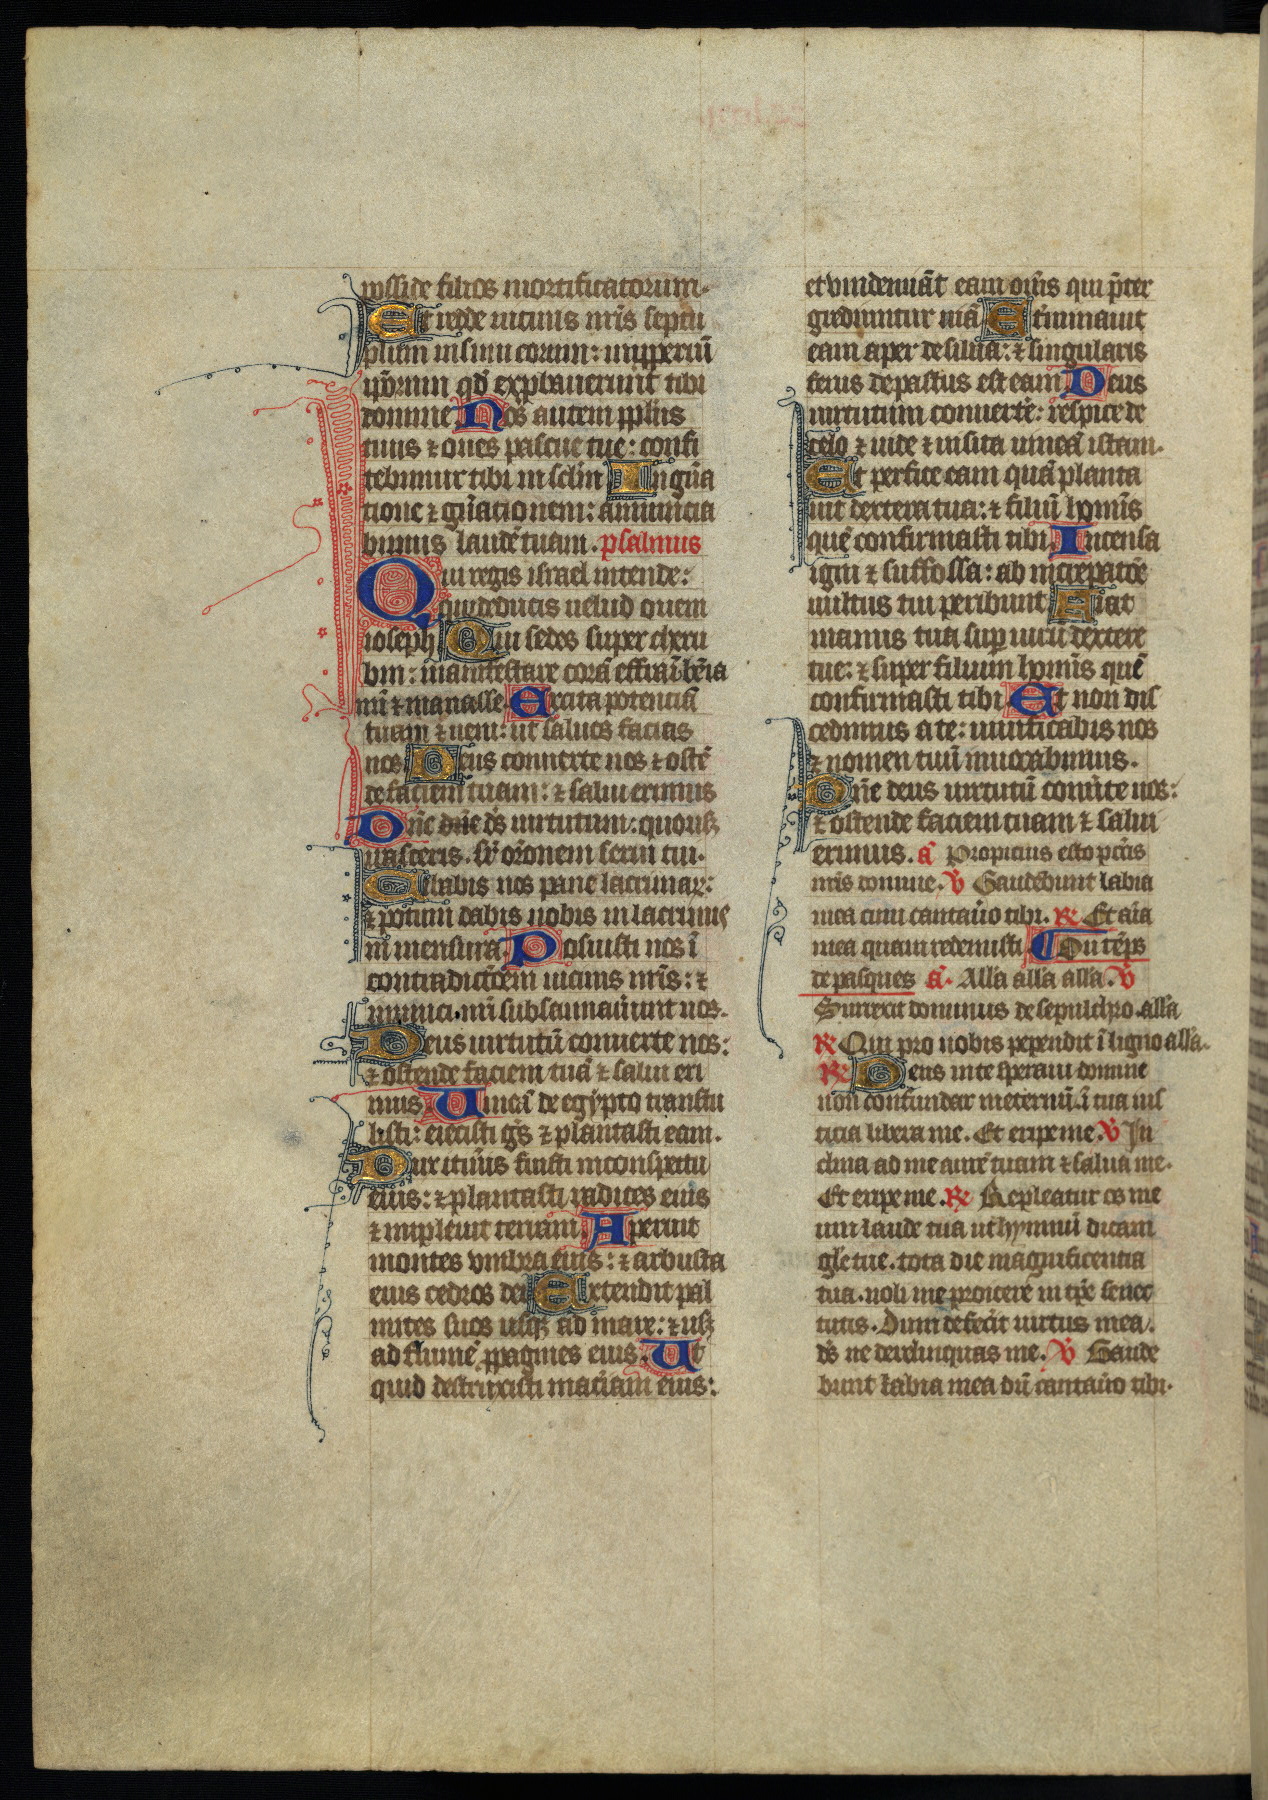 posside filios mortificatorum.
Et redde uicinis nr̄is septu
plūm in sinu eorum: imp̱periū
ip̄orum qd̓ exprobauerunt tibi
domine Nos autem ppl̄us
tuus ⁊ oues pascue tue: confi
tebimur tibi in sclm̄ In gn̄a
tione ⁊ gn̄acionem: annuncia
bimus laudē tuam. psalmus
Qui regis israel intende:
qui deducis uelud ouem
ioseph Qui sedes super cheru
bin: manifestare corā effraī bēia
mī ⁊ manasse. Excita potenciā
tuam ⁊ ueni: ut saluos facias
nos Deus conuerte nos ⁊ ostē
de faciem tuam: ⁊ salui erimus
Dn̄e dn̄e ds̄ uirtutum: quousꝫ
irasceris. sr̄ or̄onem serui tui.
Cibabis nos pane lacrimaꝝ:
⁊ potum dabis nobis in lacrimis
in mensura. Posuisti nos ī
contradictōem uicinis nr̄is: ⁊
inimici nr̄i subsannauer̄unt nos.
Deus uirtutū conuerte nos:
⁊ ostende faciem tuā ⁊ salui eri
mus Uineā de egypto transtu
listi: eiecisti gēs ⁊ plantasti eam.
Dux itin̄is fuisti in conspectu
eius: ⁊ plantasti radices eius
⁊ impleuit terram Aperuit
montes vmbra eius: ⁊ arbusta
eius cedros dei Extendit pal
mites suos usqꝫ ad mare: ⁊ usꝫ
ad flumē p̱pagines eius. Ut
quid destruxisti mac̄iam eius:
et vindemiāt eam om̄s qui p̄ter
grediuntur uiā Exterminauit
eam aper de silua: ⁊ singularis
ferus depastus est eam Deus
uirtutum conuertē: respice de
celo ⁊ uide ⁊ uisita uineā istam.
Et perfice eam quā planta
uit dextera tua: ⁊ filiū homīs
quē confirmasti tibi. Incensa
igni ⁊ suffossa: ab increpatōe
uultus tui peribunt Fiat
manus tua sup̱ uirū dextere
tue: ⁊ super filium homīs quē
confirmasti tibi Et non dis
cedimus a te: uiuificabis nos
⁊ nomen tuū inuocabimus.
Dn̄e deus uirtutū conūte nos:
⁊ ostende faciem tuam ⁊ salui
erimus. ā Propicius esto pctīs
nr̄is domine. ℣ Gaudebunt labia
mea cum cantau̓o tibi. ℟ Et aīa
mea quam redemisti ¶ Ou tēps
de pasques ā. All'a all'a all'a. ℣
Surrexit dominus de sepulchro. all'a
℟ Qui pro nobis pependit ī ligno all'a.
℟ Deus in te speraui domine
non confundar in eternū. ī tua ius
ticia libera me. Et eripe me. ℣ In
clina ad me aurē tuam ⁊ salua me.
Et eripe me. ℟ Repleatur os me
um laude tua ut hymnū dicam
gl'e tue. tota die magnificencia
tua. noli me proicere in tp̄e senec
tutis. Dum defec̄it uirtus mea.
ds̄ ne derelinquas me. ℣ Gaude
bunt labia mea dū cantau̓o tibi.